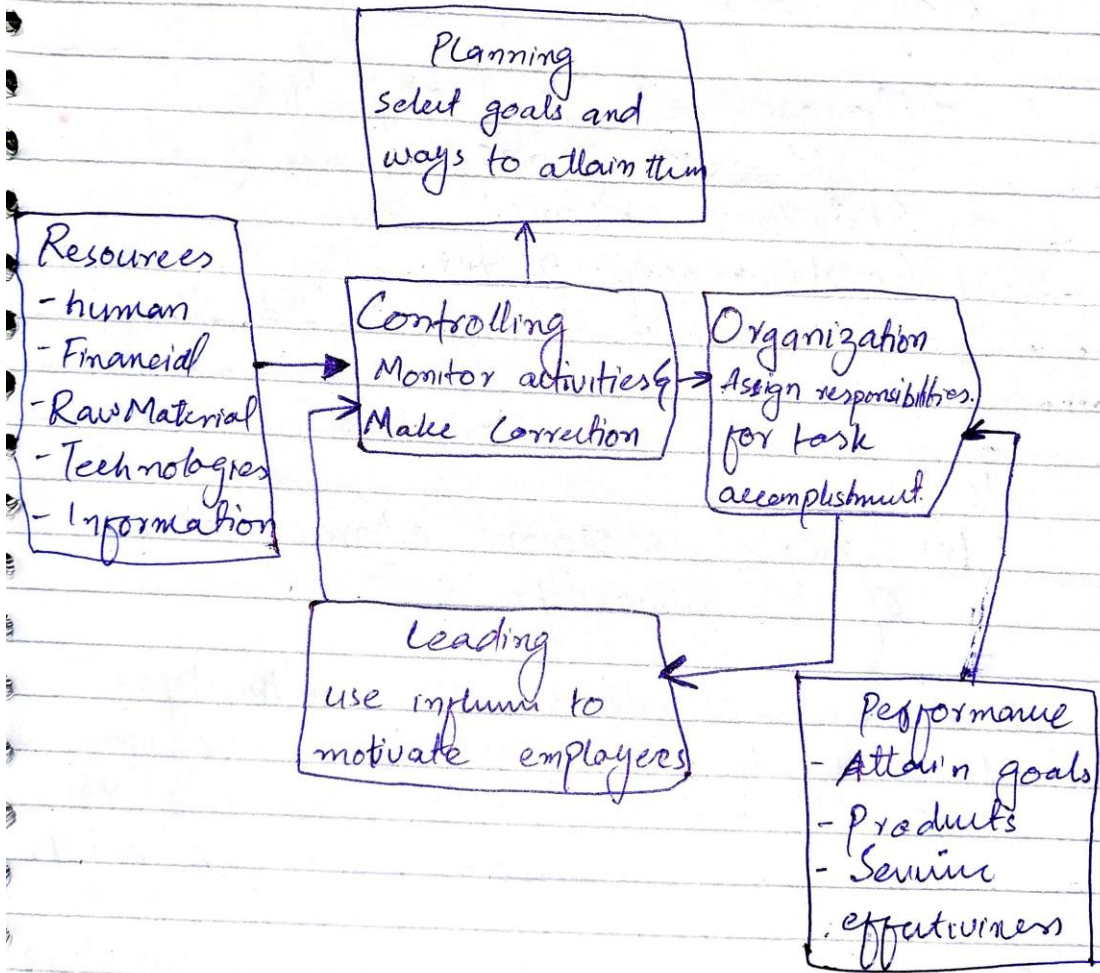 Planning
select goals and
ways to attain them
Resources
- human
- Financial
- Raw Material
- Technologies
- Information
Controlling
Monitor activities &
Make Correction
Organization
Assign responsibilities.
for task
accomplishment.
Leading
use to
motivate employees
Performance
- Attain goals
- Products
- Service
effectiveness